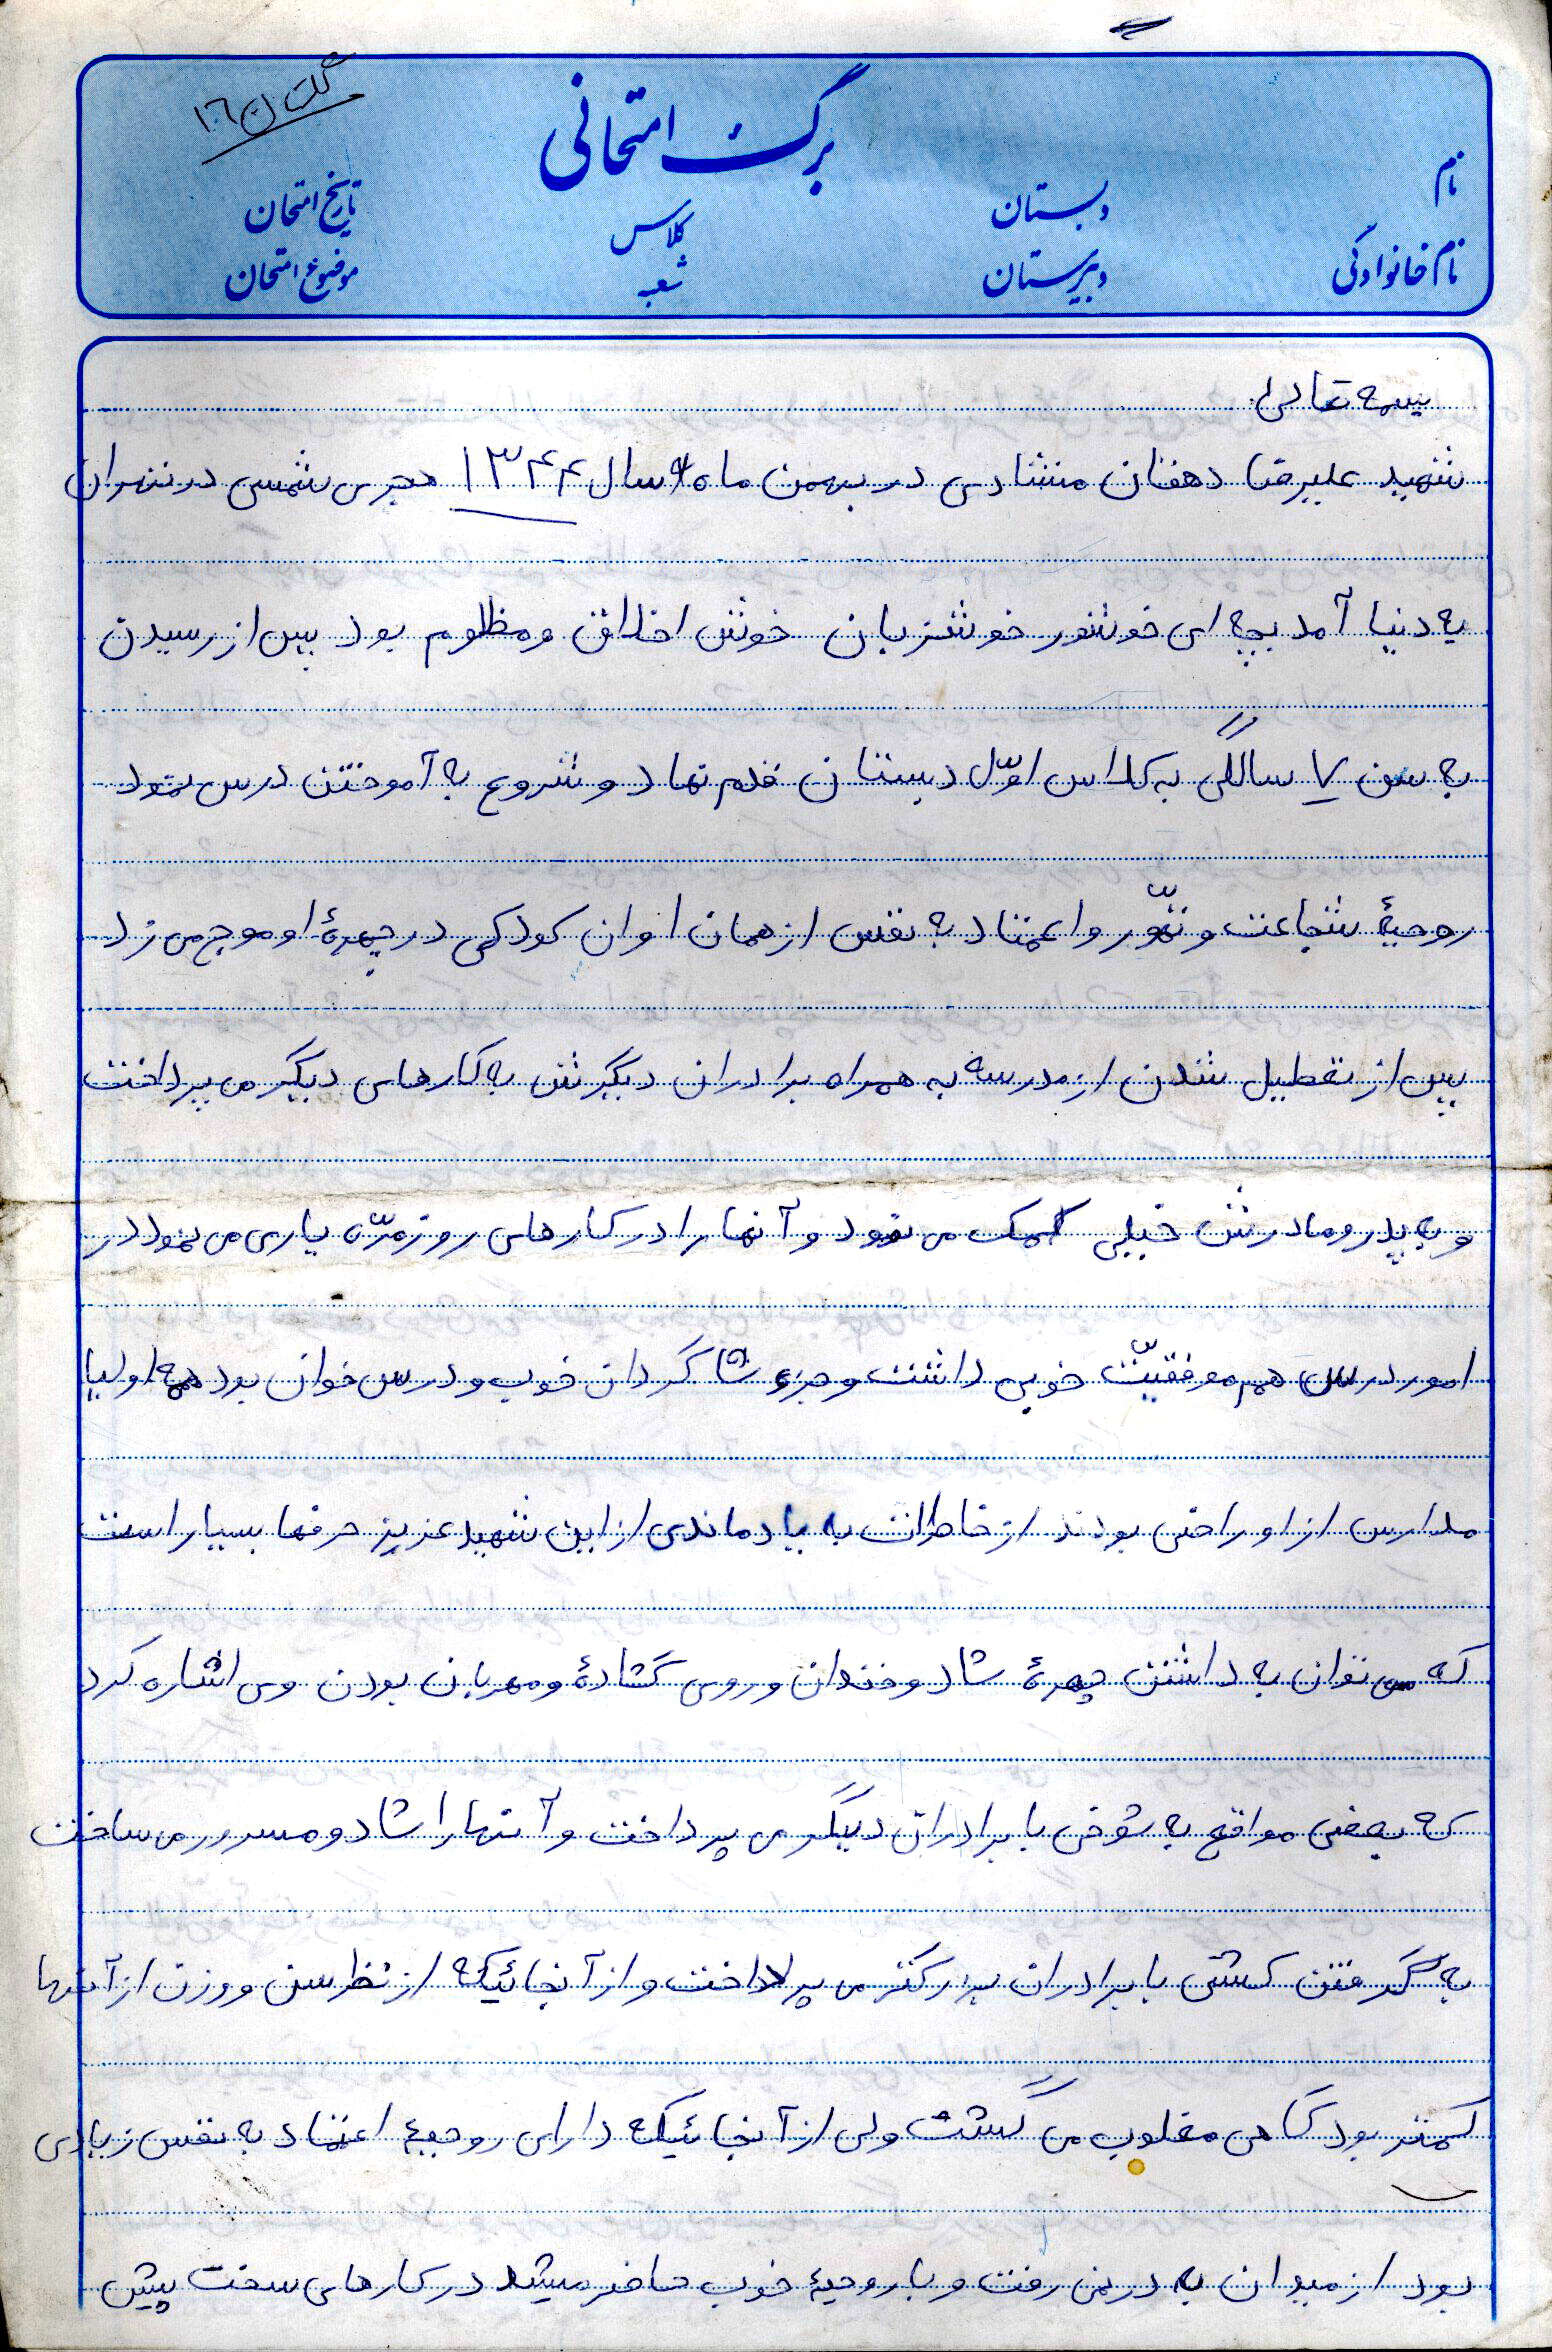 برگ امتحانی
نام
دبستان
تاریخ امتحان
کلاس
نام خانوادگی
دبیرستان
شعبه
موضوع امتحان
بسمه تعالی
شهید علیرضا دهقان منشادی در بهمن ماه سال ۱۳۴۴ هجری شمسی در تهران
به دنیا آمد بچه ای خوشرو خوشزبان خوش اخلاق و مظلوم بود پس از رسیدن
به سن ۷ سالگی به کلاس اوّل دبستان قدم نهاد و شروع به آموختن درس نمود
روحیهٔ شجاعت و تهّور و اعتماد به نفس از همان اوان کودکی در چهرهٔ او موج می زد
پس از تعطیل شدن از مدرسه به همراه برادران دیگرش به کارهای دیگر می پرداخت
و به پدر و مادرش خیلی کمک می نمود و آنها را در کارهای روزمرّه یاری می نمود در
امور درس هم موفقیّت خوبی داشت و جزء شاگردان خوب و درس خوان بود همه اولیا
مدارس از او راضی بودند از خاطرات به یاد ماندی از این شهید عزیز حرفها بسیار است
که می توان به داشتن چهرهٔ شاد و خندان و روی گشادهٔ و مهربان بودن وی اشاره کرد
که بعضی مواقع به شوخی با برادران دیگر می پرداخت و آنها را شاد و مسرور می ساخت
به گرفتن کشتی با برادران بزرگتر می پرداخت و از آنجائیکه از نظر سن و وزن از آنها
کمتر بود گاهی مغلوب می گشت ولی از آنجائیکه دارای روحیهٔ اعتماد به نفس زیادی
بود از میدان به در نمی رفت و با روحیهٔ خوب حاضر میشد در کارهای سخت پیش